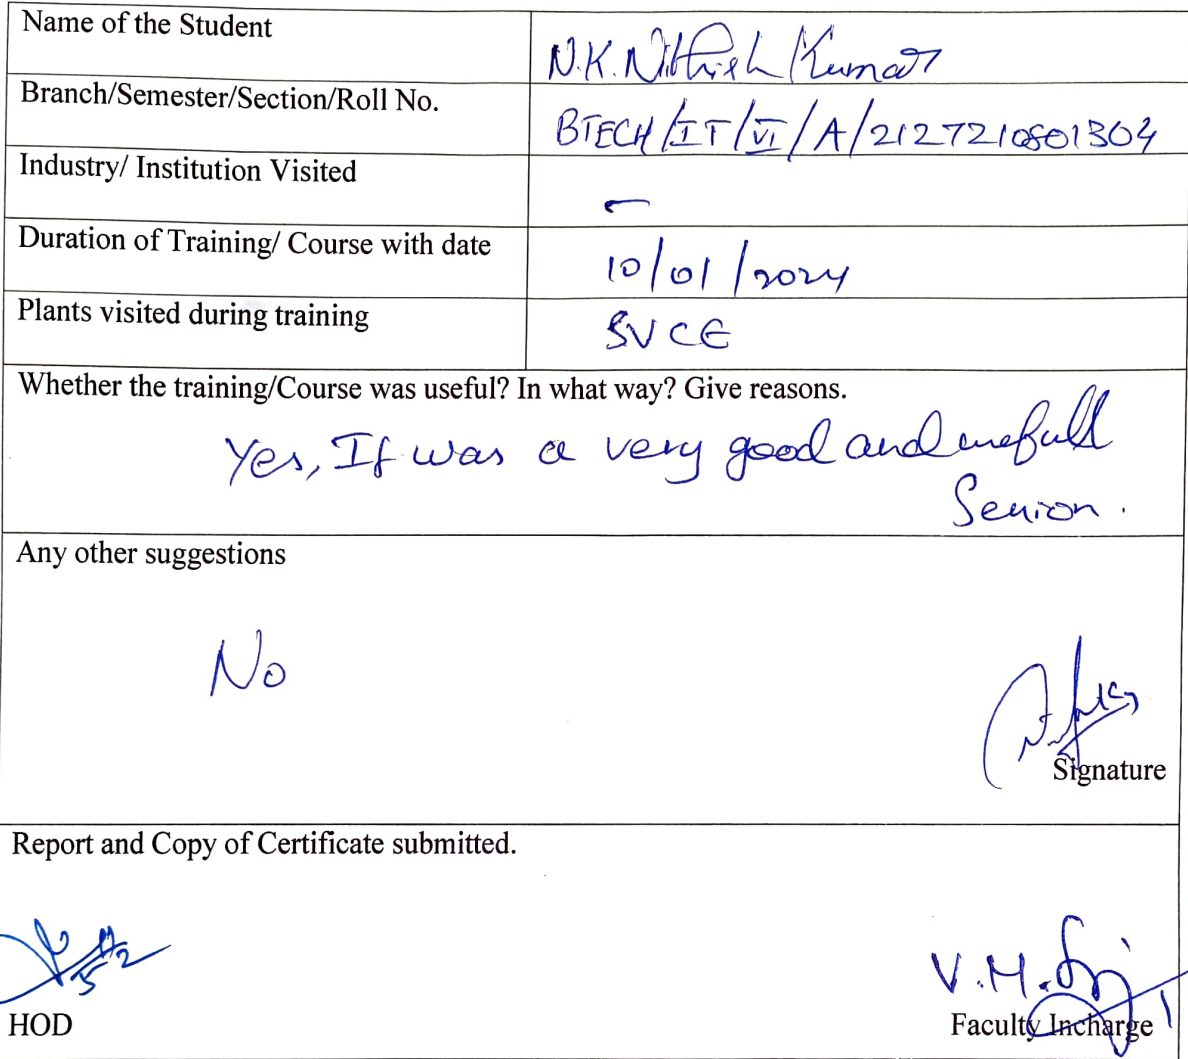 Name of the Student
N.K. Nithish Kumar
Branch/Semester/Section/Roll No.
BTECH/IT/VI/A/212721
Industry/ Institution Visited
-
Duration of Training/ Course with date
10/01/2024
Plants visited during training
SVCE
Whether the training/Course was useful? In what way? Give reasons.
Yes, It was a very good and usefull
Session.
Any other suggestions
No
Signature
Report and Copy of Certificate submitted.
V.M.
HOD
Faculty Incharge